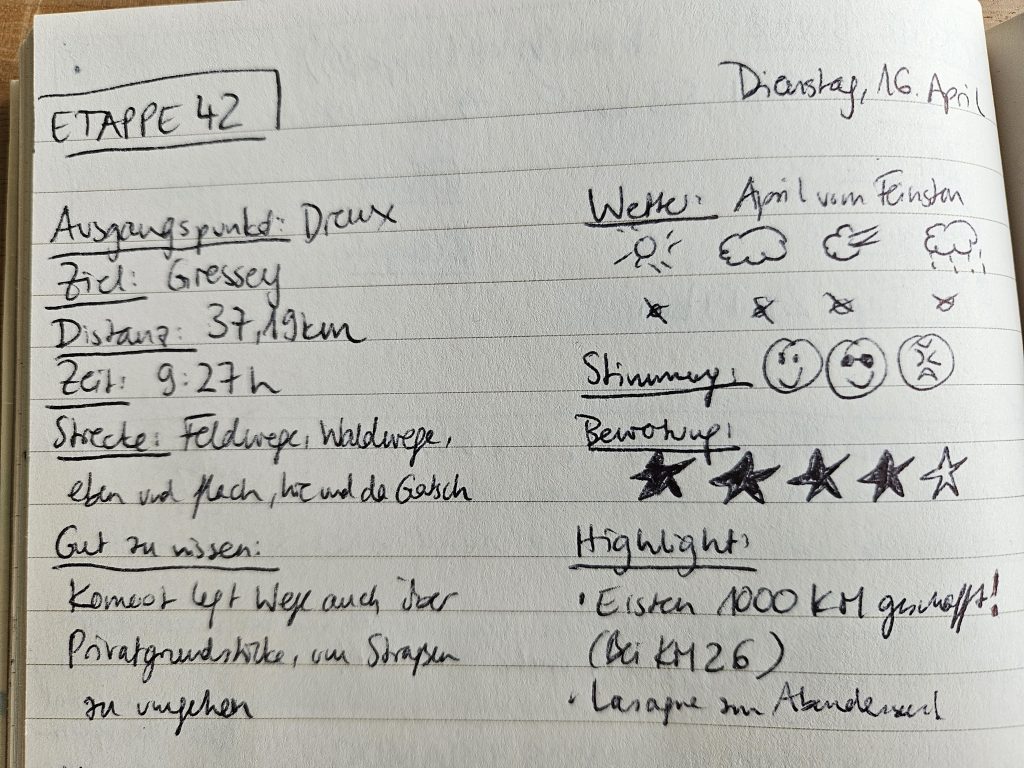 ETAPPE 42
Dienstag, 16. April
Ausgangspunkt: Dreux
Ziel: Gressey
Distanz: 37,19km
Zeit: 9:27h
Strecke: Feldwege, Waldwege,
eben und flach, hie und da Gatsch
Gut zu wissen:
Komoot legt Wege auch über
Privatgrundstücke, um Straßen
zu umgehen
Wetter: April vom Feinsten
Stimmung:
Bewertung:
Highlight:
• Ersten 1000 KM geschafft!
(Bei KM 26)
• Lasagne zum Abendessen